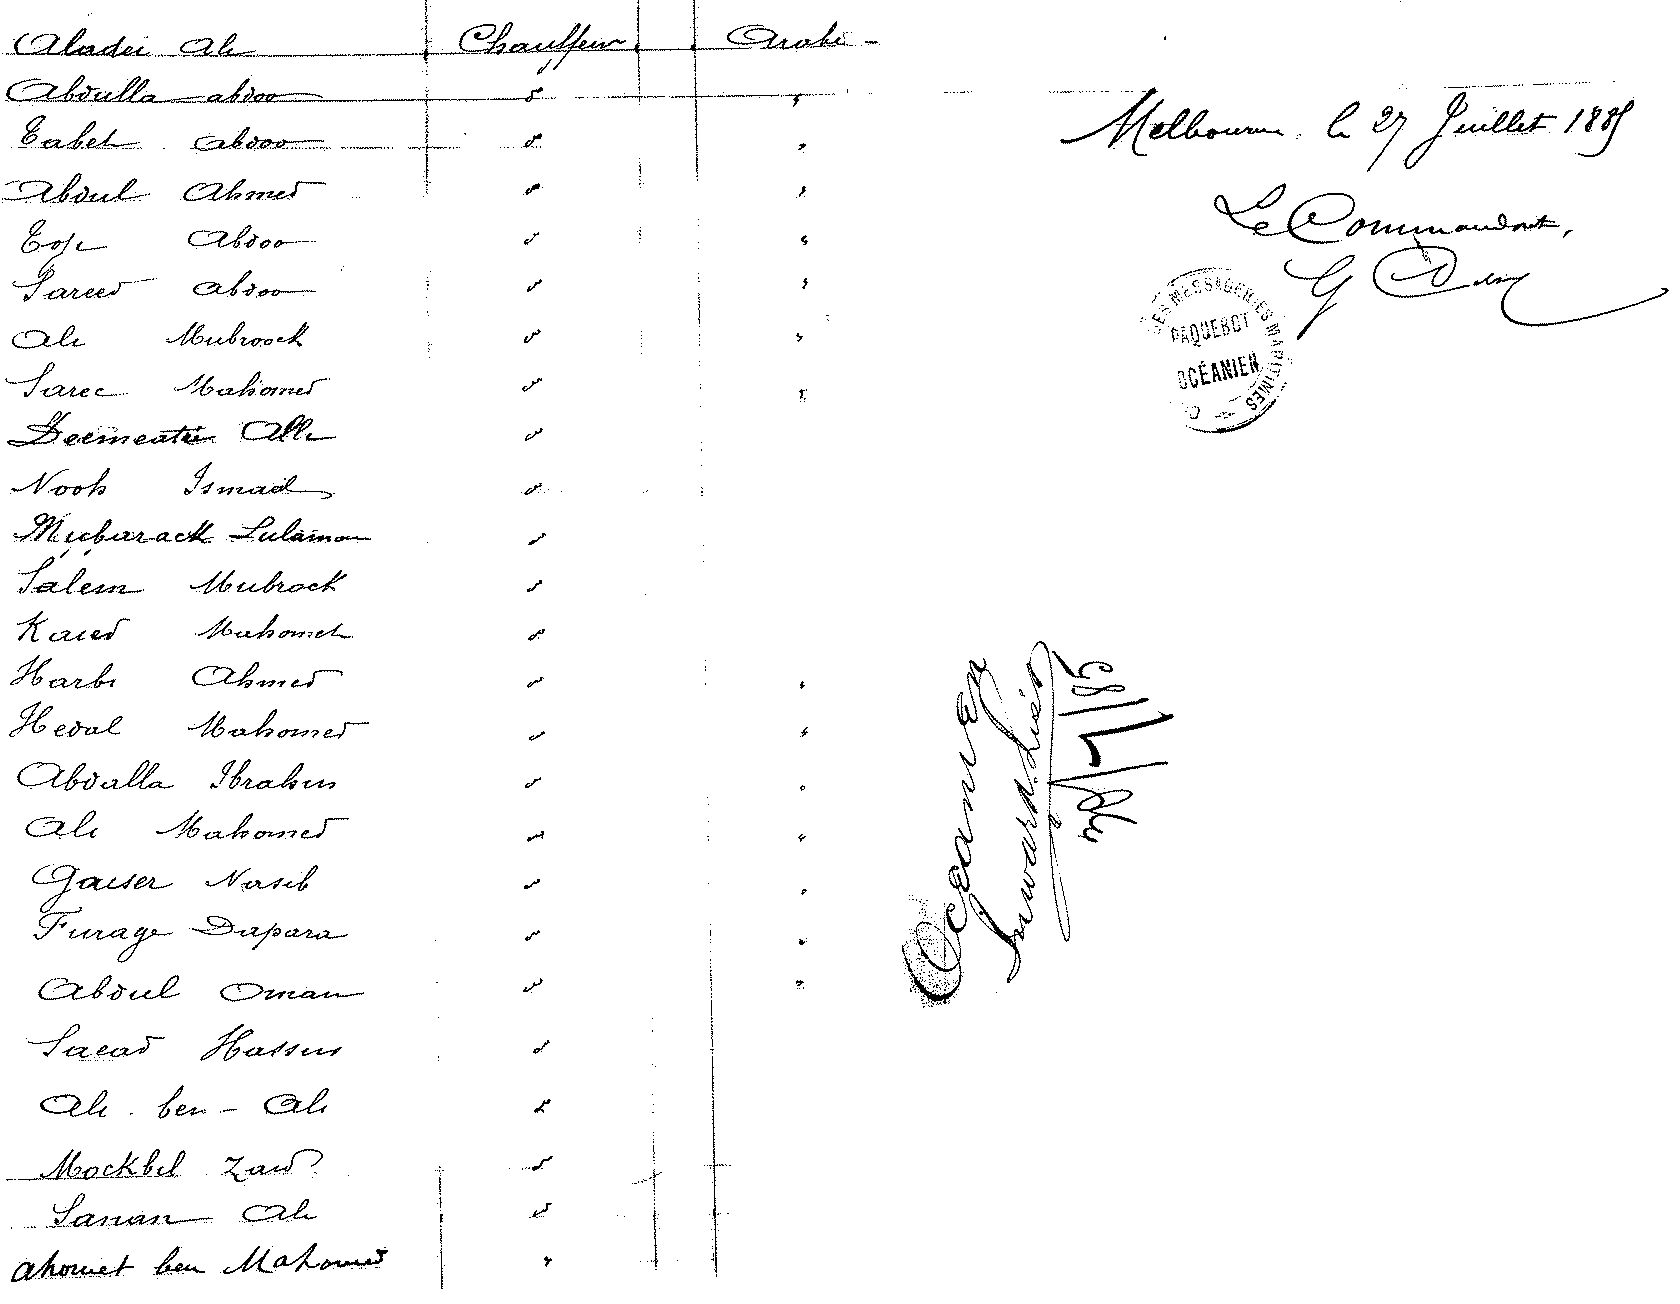 Aladei Ali Chauffeur Arabe -
Abdulla abdoo " "
Tabet abdoo " "
Abdul Ahmed " "
Abdoo " "
Sareed abdoo " "
Ali Mubroock " "
Saree Mahomed " "
Alli "
Nook Ismail "
Mubarack Sulaiman "
Salem Mubrock "
Kaied Mahomet "
Harbi Ahmed " "
Hedal Mahomed " "
Abdalla Ibrahim " "
Ali Mahomed " "
Gaiser Nasib " "
Furage Dapara " "
Abdul Oman " "
Saead Hassin "
Ali ben - Ali "
Mockbil Zaid "
Sanan Ali "
ahomet ben Mahomed "
Melbourne le 27 Juillet 1885
Le Commandant,
G
DES MESSAGERIES MARITIMES
PAQUEBOT
OCÉANIEN
Oceanien
Inward List